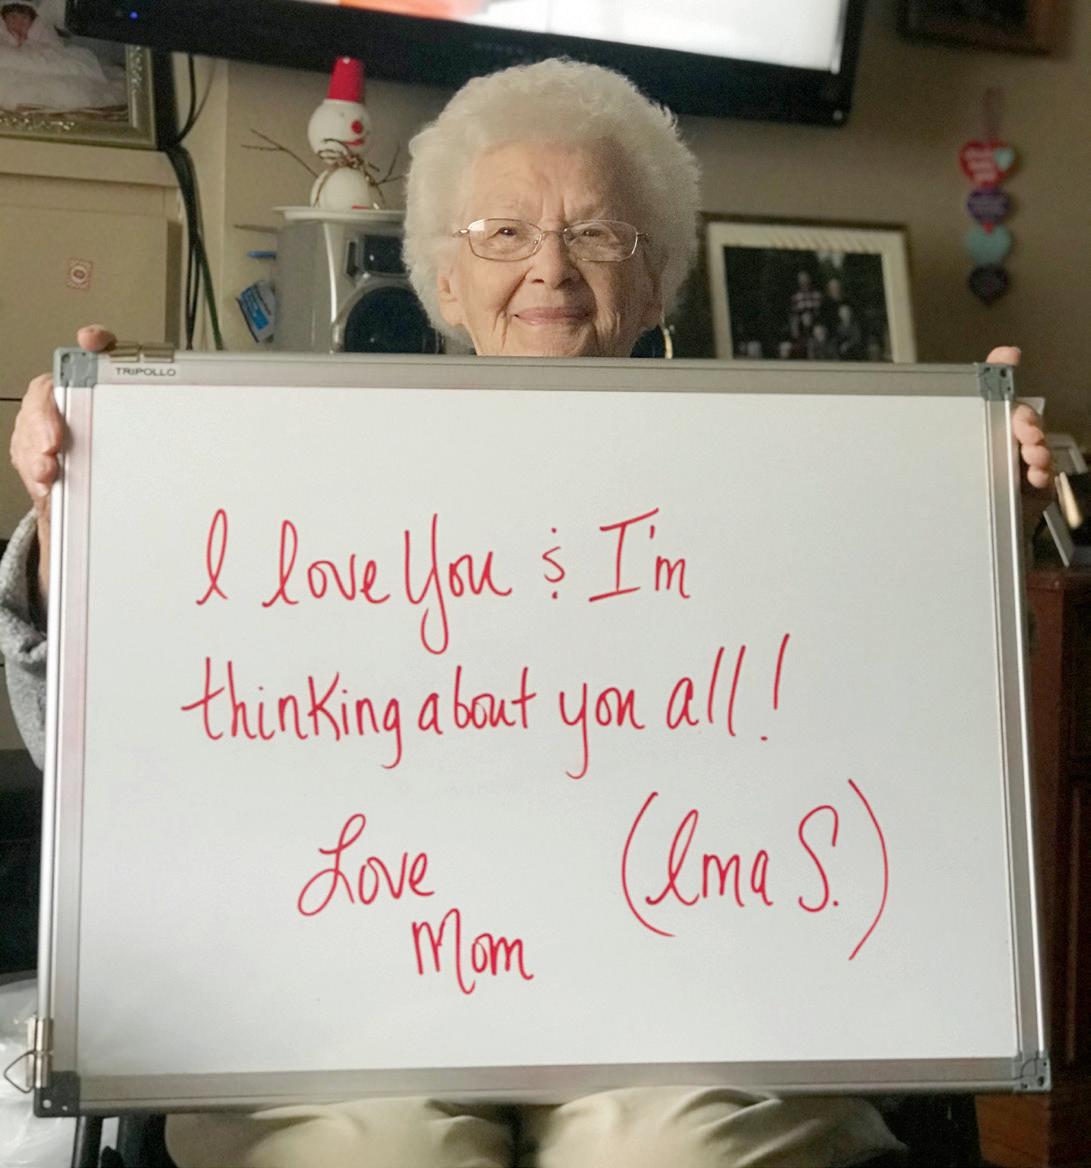 TRIPOLLO
I love You & I'm
thinking about you all!
Love
Mom
(Ima S.)